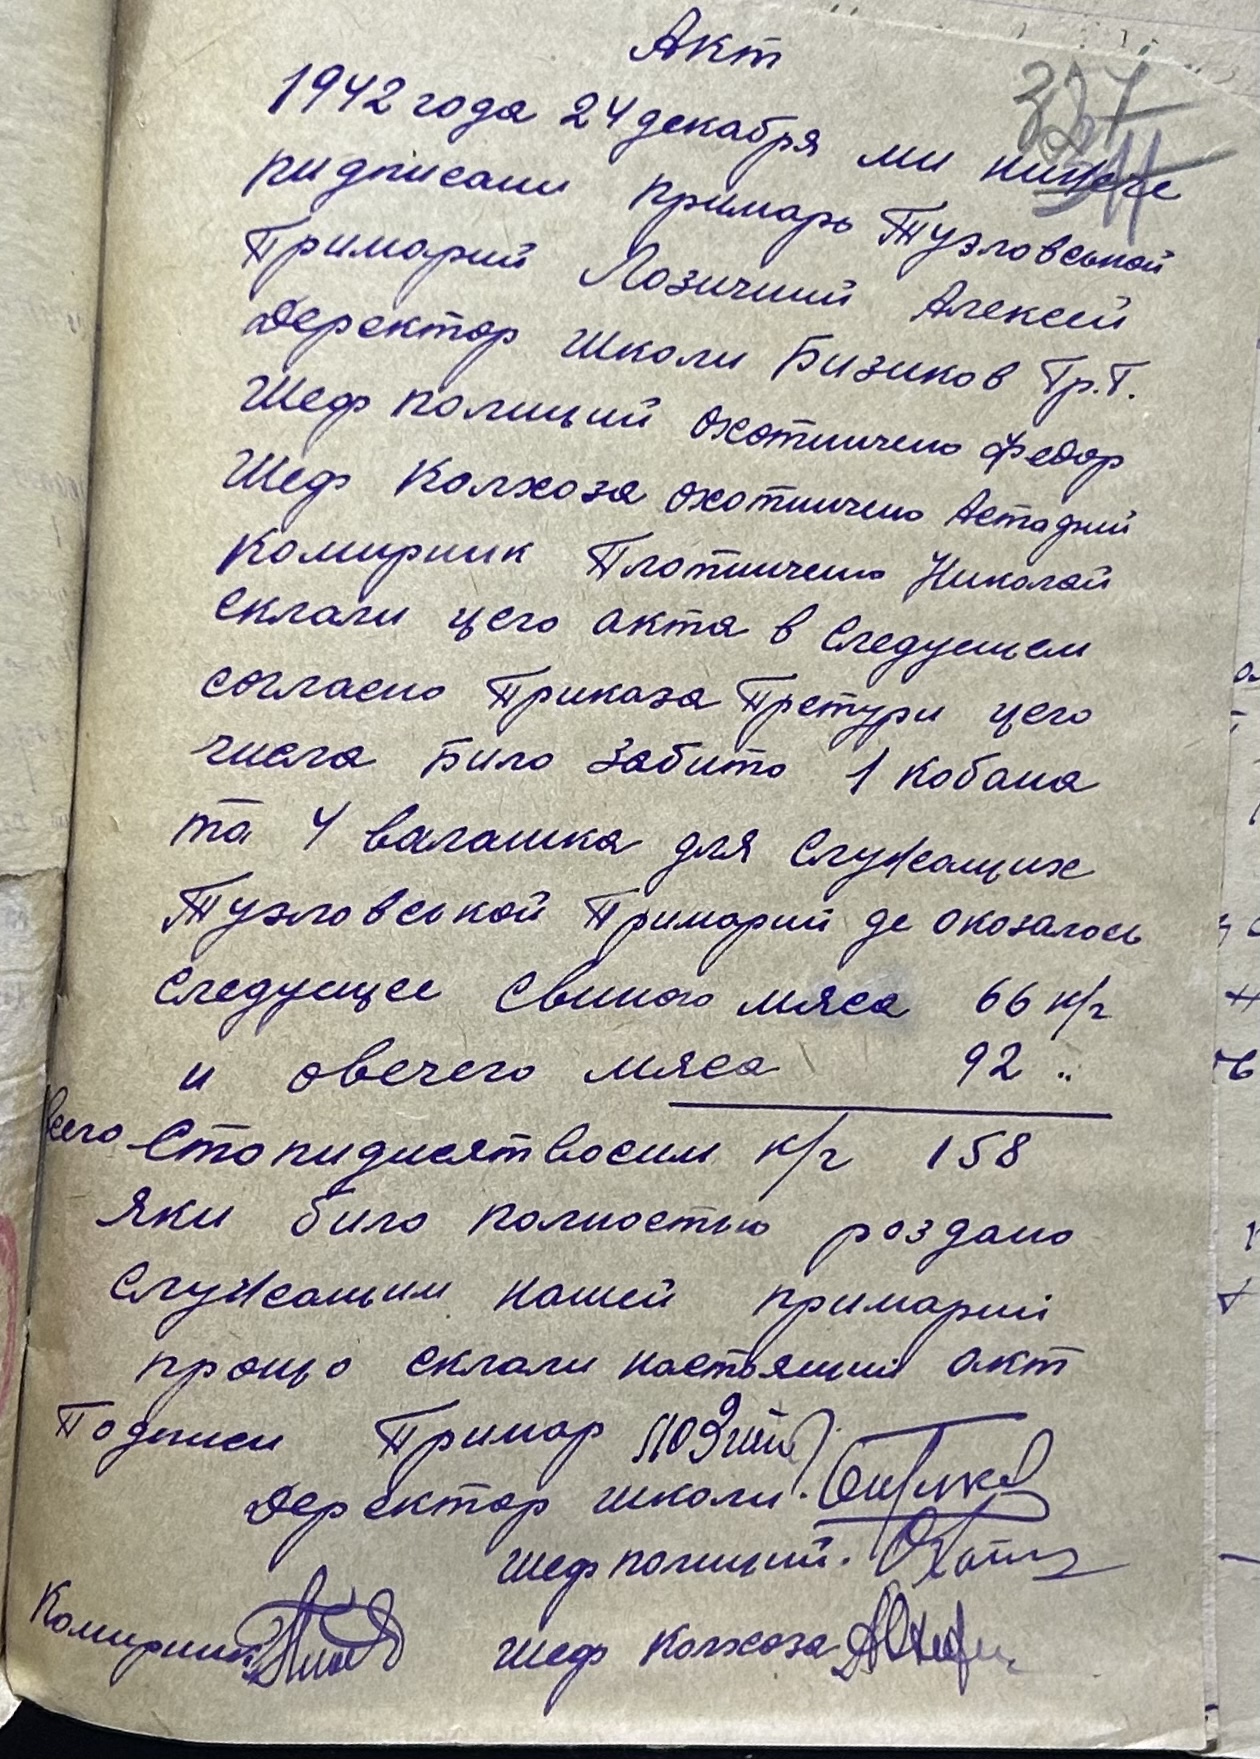 Акт
327
1942 года 24 декабря ми ниже
пидписани примарь Тузловськой
Примарий Лозичний Алексей
Деректор школи Бизиков Гр.Г.
Шеф полиций Охотниченко Федор
Шеф Колхоза Охотниченко Астафий
Комирник Плотниченко Николай
склали цего акта в следующем
согласно Приказа Претури цего
числа било забито 1 кобана
та 4 валашка для служащих
Тузловськой Примарий де оказалось
следующее свиного мяса 66 к/г
и овечего мяса 92 "
всего Стопидисятвосим к/г 158
яки било полностью роздано
служащим нашей примарий
прощо склали настоящий акт
Подписи Примар
Деректор школи.
Шеф полиций.
Комирник Шеф Колхоза